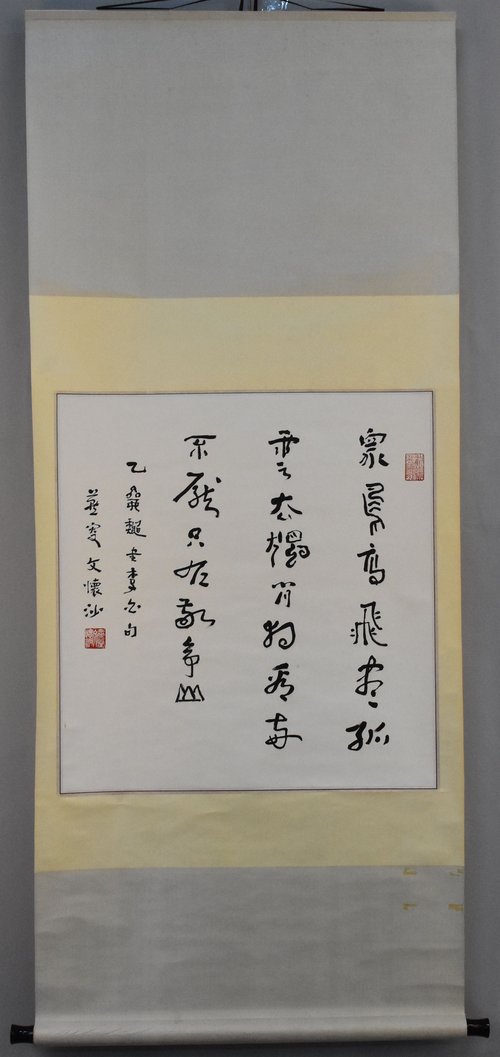 眾鳥高飛盡孤
雲去獨閒相看兩
不厭只有敬亭山
乙書李白句
燕叟文懷沙